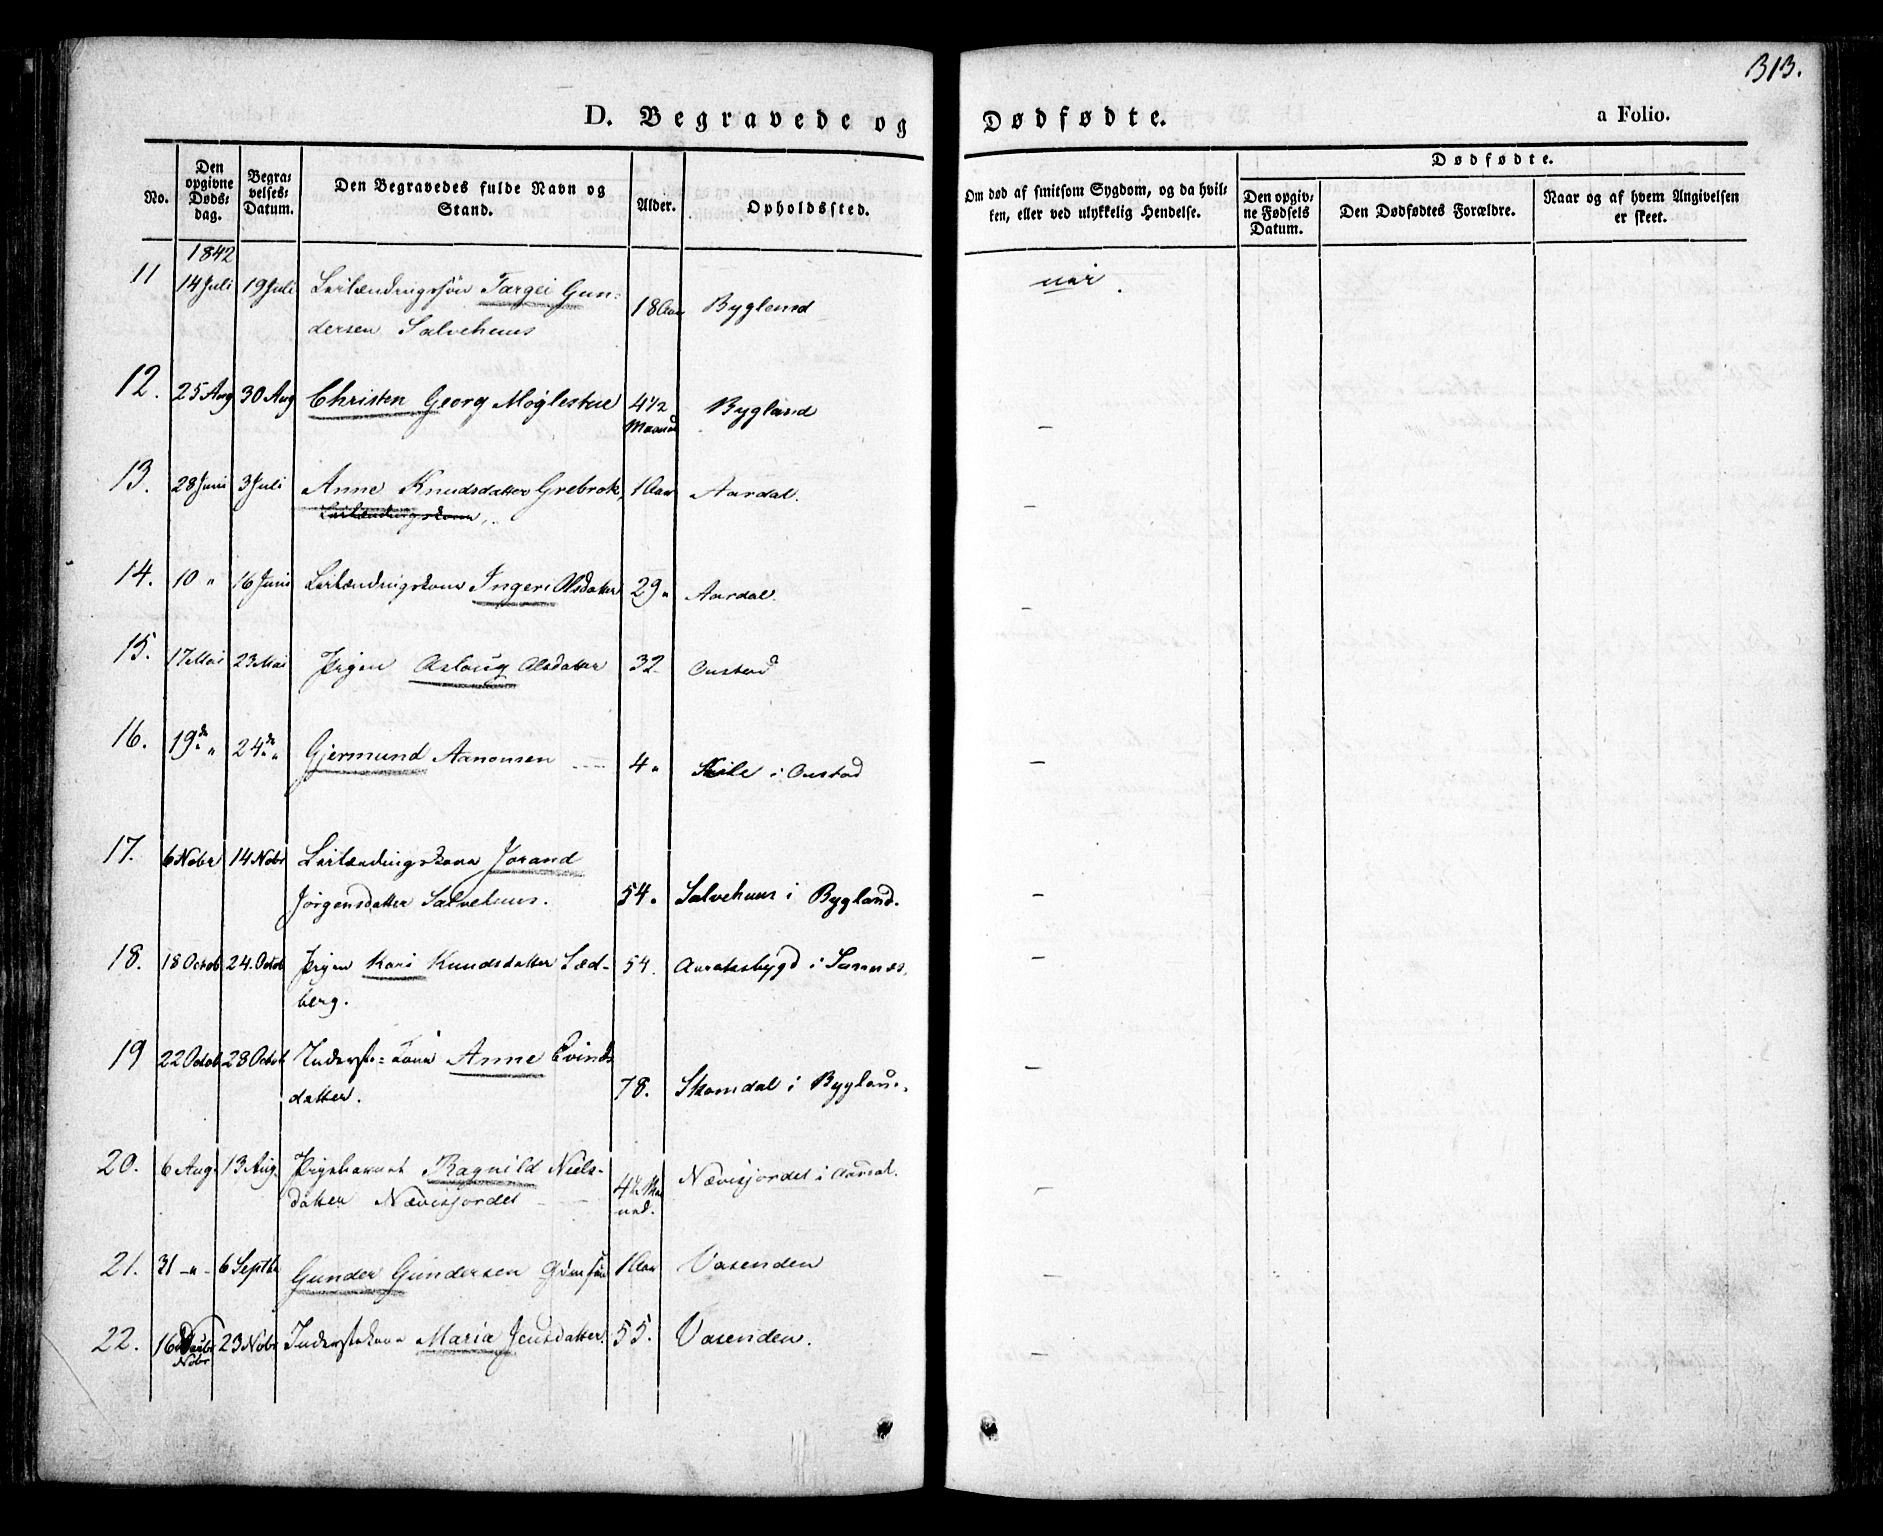 313.
D. Begravede og Dødfødte. a Folio.
No. Den opgivne Døds-dag. Begra-velses-Datum. Den Begravedes fulde Navn og Stand. Alder. Opholdssted. Om død af smitsom Sygdom, og da hvil-ken, eller ved ulykkelig Hendelse. Dødfødte. Den opgiv-ne Fødsels Datum. Den Dødfødtes Forældre. Naar og af hvem Angivelsen er skeet.
1842
11 14 Juli 19 Juli Leilændingssøn Targei Gun-
dersen Salvehuus 18 Aar Bygland
12. 25 Aug 30 Aug Christen Georg Møglestue 4 1/2 Maaned Bygland —
13. 28 Juni 3 Juli Anne Knudsdatter Grebrok, 1 Aar Aardal. —
Leilændingskone,
14. 10 " 16 Juni Leilændingskone Ingeri Olsdatter 29 " Aardal. —
15. 17 Mai 23 Mai Pigen Aslaug Olsdatter 32 Oustad
16. 19 de " 24 de " Gjermund Aanonsen 4 " i Oustad —
17. 6 Nobr 14 Nobr Leilændingskone Jorand
Jørgensdatter Salvehuus. 54. Salvehuus i Bygland. —
18. 18 Octob 24. Octob Pigen Kari Knudsdatter Læd-
berg. 54. i Sannes. —
19 22 Octob 28 Octob Inderste-kone Anne Evinds
datter. 78. Skomdal i Bygland. —
20. 6 Aug. 13 Aug. Pigebarnet Ragnild Niels-
datter Nævisjordet 4 1/2 Maaned. Nævisjordet i Aardal. —
21. 31 — " - 6 Septbr Gunder Gundersen 1 Aar Vasenden —
22. 16 Nobr 23 Nobr Inderstekone Maria Jensdatter 55. Vasenden. —